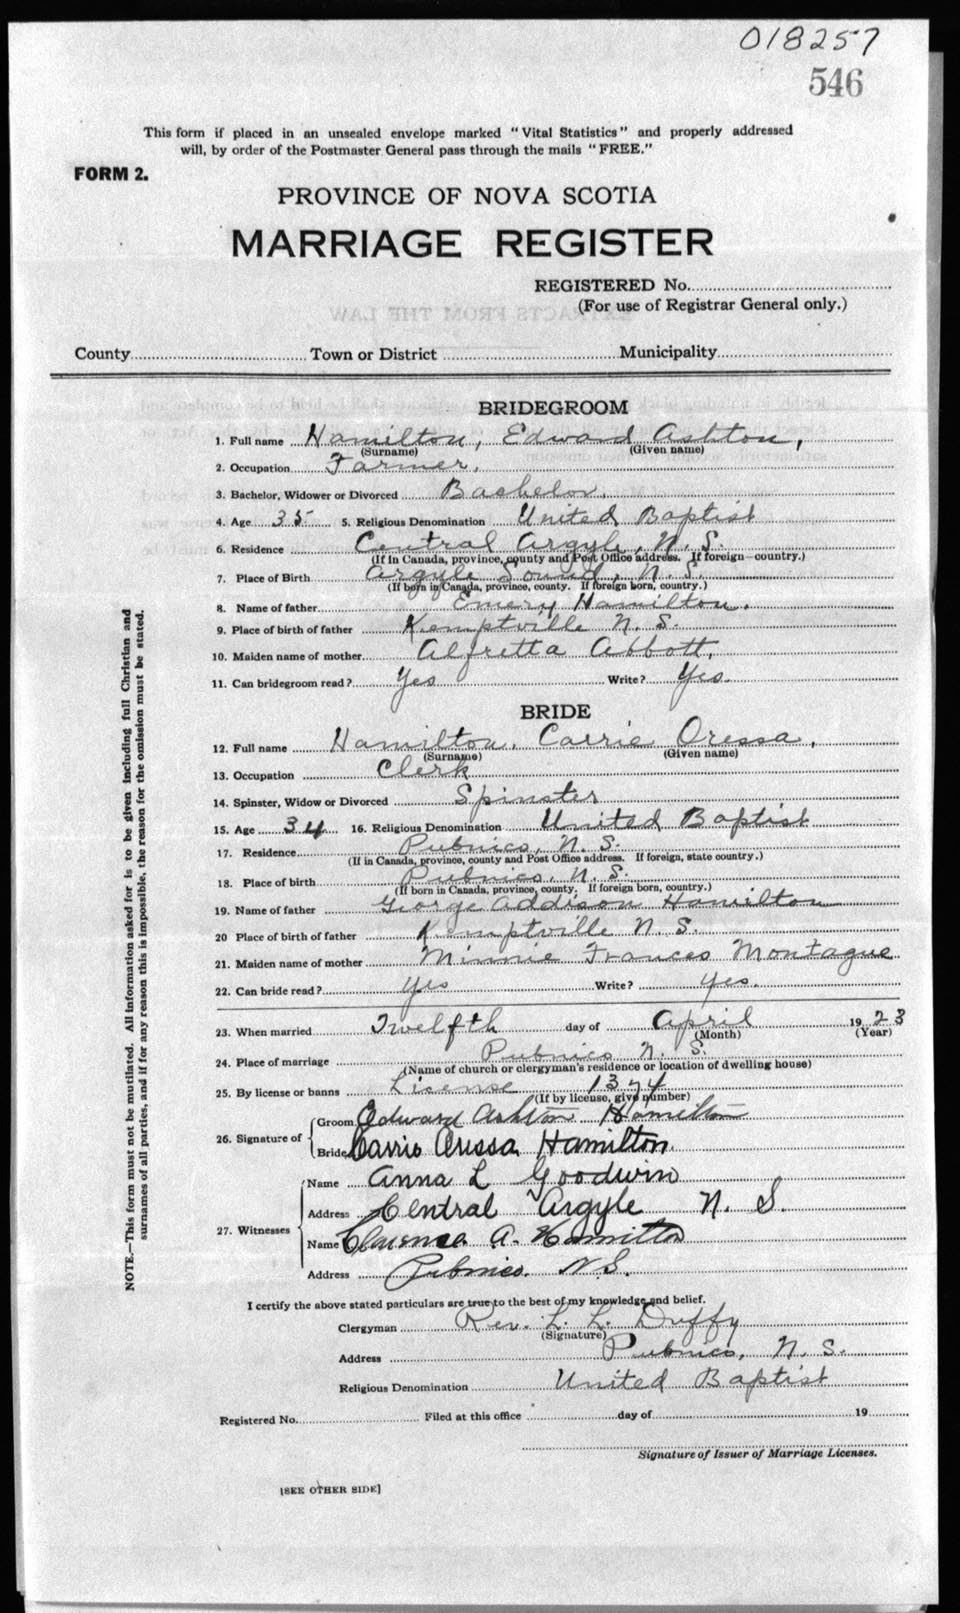 018257
546
This form if placed in an unsealed envelope marked "Vital Statistics" and properly addressed
will, by order of the Postmaster General pass through the mails "FREE."
FORM 2.
PROVINCE OF NOVA SCOTIA
MARRIAGE REGISTER
REGISTERED No.
(For use of Registrar General only.)
County Town or District Municipality
BRIDEGROOM
1. Full name Hamilton, Edward Ashton,
(Surname) (Given name)
2. Occupation Farmer,
3. Bachelor, Widower or Divorced Bachelor,
4. Age 35 5. Religious Denomination United Baptist
6. Residence Central Argyle, N. S.
(If in Canada, province, county and Post Office address. If foreign—country.)
7. Place of Birth Argyle Sound, N. S.
(If born in Canada, province, county. If foreign born, country.)
8. Name of father Emery Hamilton.
9. Place of birth of father Kemptville N. S.
10. Maiden name of mother Alfretta Abbott,
11. Can bridegroom read? Yes Write? Yes.
BRIDE
12. Full name Hamilton, Carrie Oressa,
(Surname) (Given name)
13. Occupation Clerk
14. Spinster, Widow or Divorced Spinster
15. Age 34 16. Religious Denomination United Baptist
17. Residence Pubnico, N. S.
(If in Canada, province, county and Post Office address. If foreign, state country.)
18. Place of birth Pubnico, N. S.
(If born in Canada, province, county. If foreign born, country.)
19. Name of father George Addison Hamilton
20 Place of birth of father Kemptville N. S.
21. Maiden name of mother Minnie Frances Montague
22. Can bride read? Yes Write? Yes.
23. When married Twelfth day of April 1923
(Month) (Year)
24. Place of marriage Pubnico N. S.
(Name of church or clergyman's residence or location of dwelling house)
25. By license or banns License 1374
(If by license, give number)
26. Signature of Groom Edward Ashton Hamilton
Bride Carrie Oressa Hamilton
27. Witnesses Name Anna L Goodwin
Address Central Argyle N. S.
Name Clarence A. Hamilton
Address Pubnico. N.S.
I certify the above stated particulars are true to the best of my knowledge and belief.
Clergyman Rev. L. L. Duffy
(Signature)
Address Pubnico, N. S.
Religious Denomination United Baptist
Registered No. Filed at this office day of 19
Signature of Issuer of Marriage Licenses.
[SEE OTHER SIDE]
NOTE.—This form must not be mutilated. All information asked for is to be given including full Christian and
surnames of all parties, and if for any reason this is impossible, the reason for the omission must be stated.